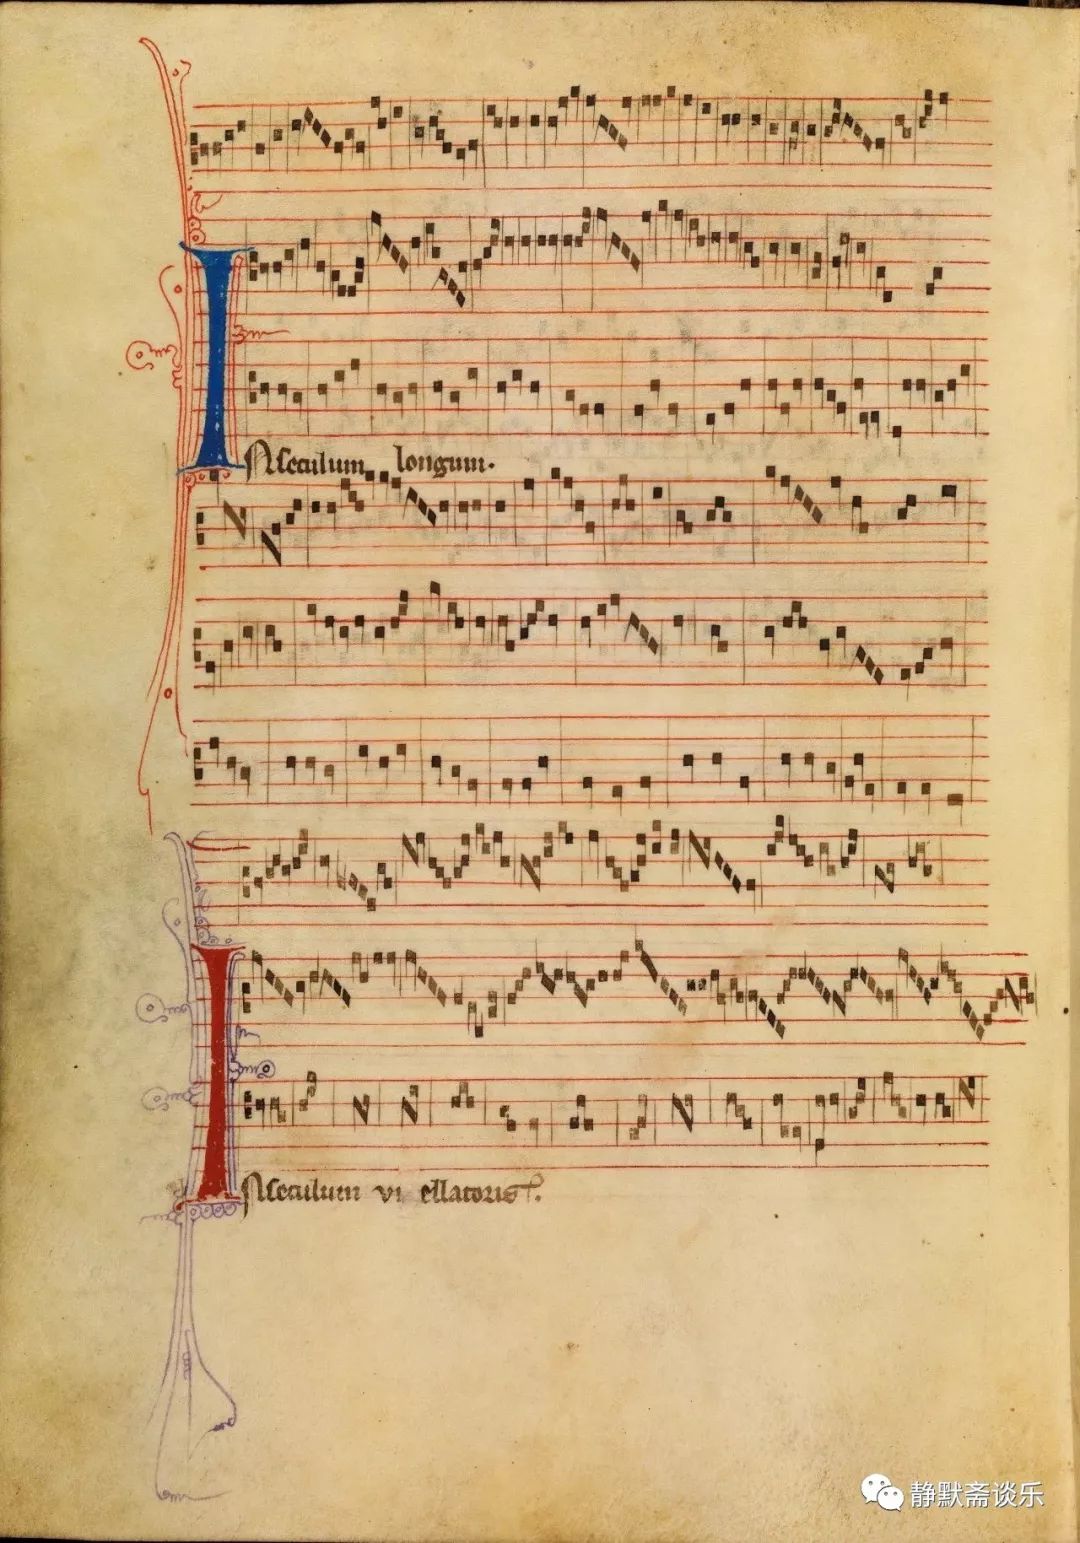 In seculum longum.
In seculum viellatoris.
静默斋谈乐